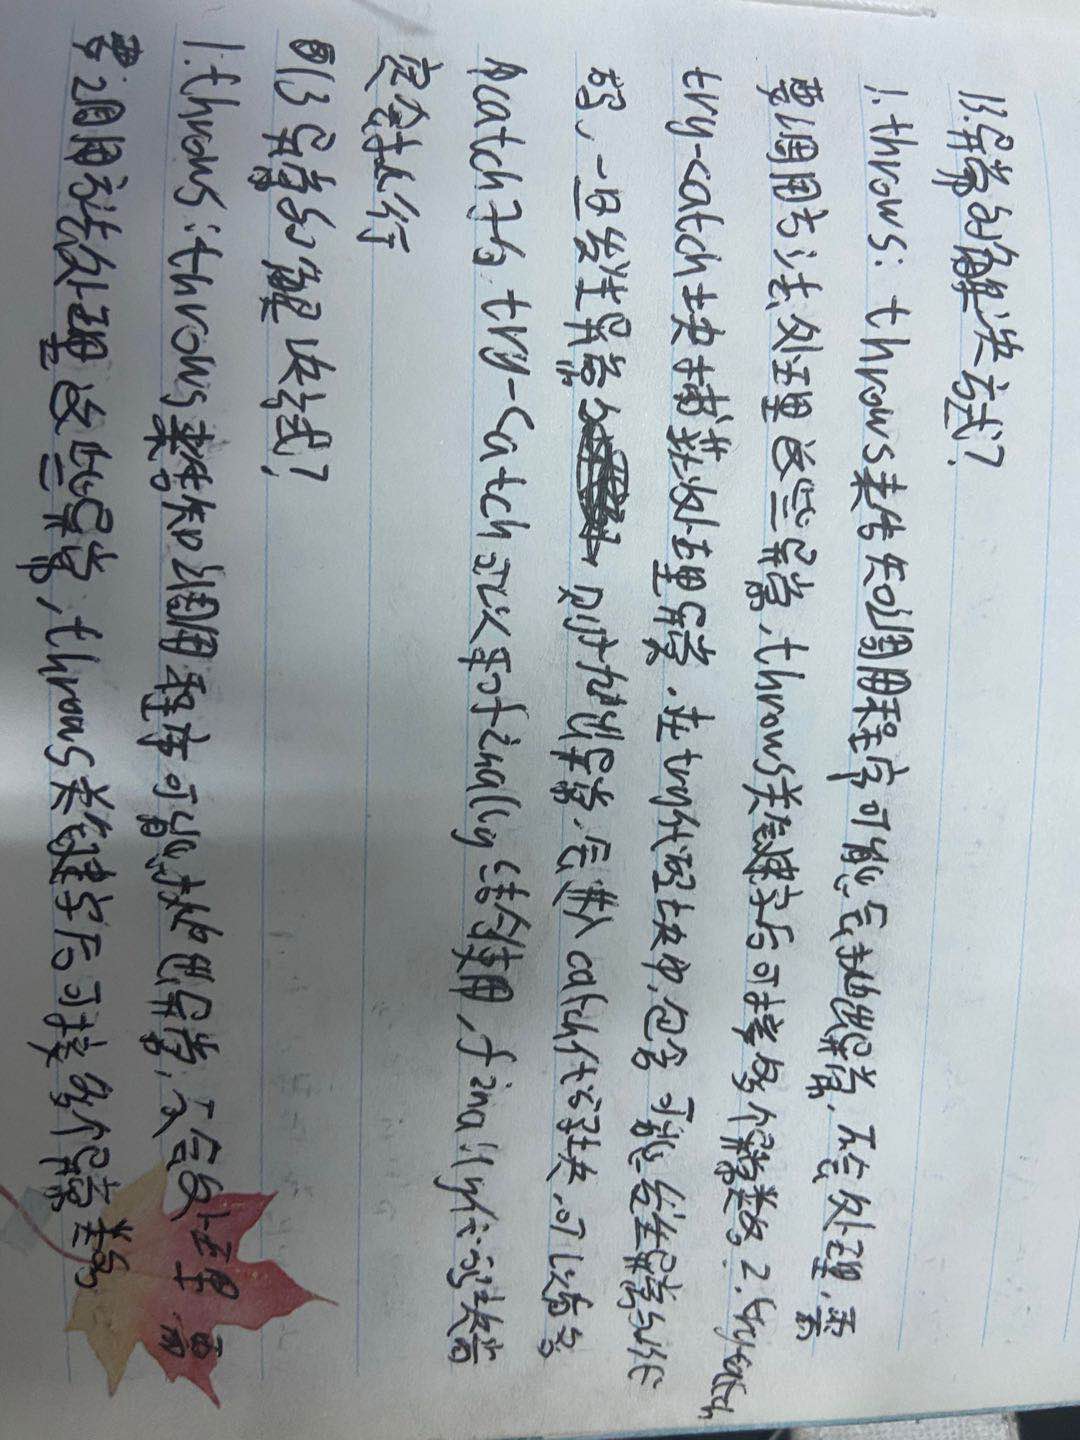 13.异常的解决方式?
1. throws: throws来告知调用程序可能会抛出异常,不会处理,需
要调用方法处理这些异常,throws关键字后可接多个异常类数。2.trycatch
try-catch块捕获处理异常,在try代码块中,包含可能发生异常的代
码,一旦发生异常 则抛出异常,会进入catch代码块,可以有多
个catch子句,try-catch可以和finally结合使用,finally代码块总
会执行
则13异常的解决方式?
1.throws:throws来告知调用程序可能抛出异常,不会处理,而
需调用方法处理这些异常,throws关键字后可接多个异常类数